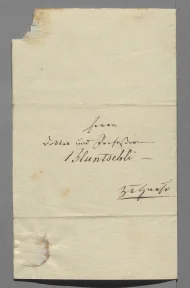 Herrn
Doktor und Professor
Bluntschli